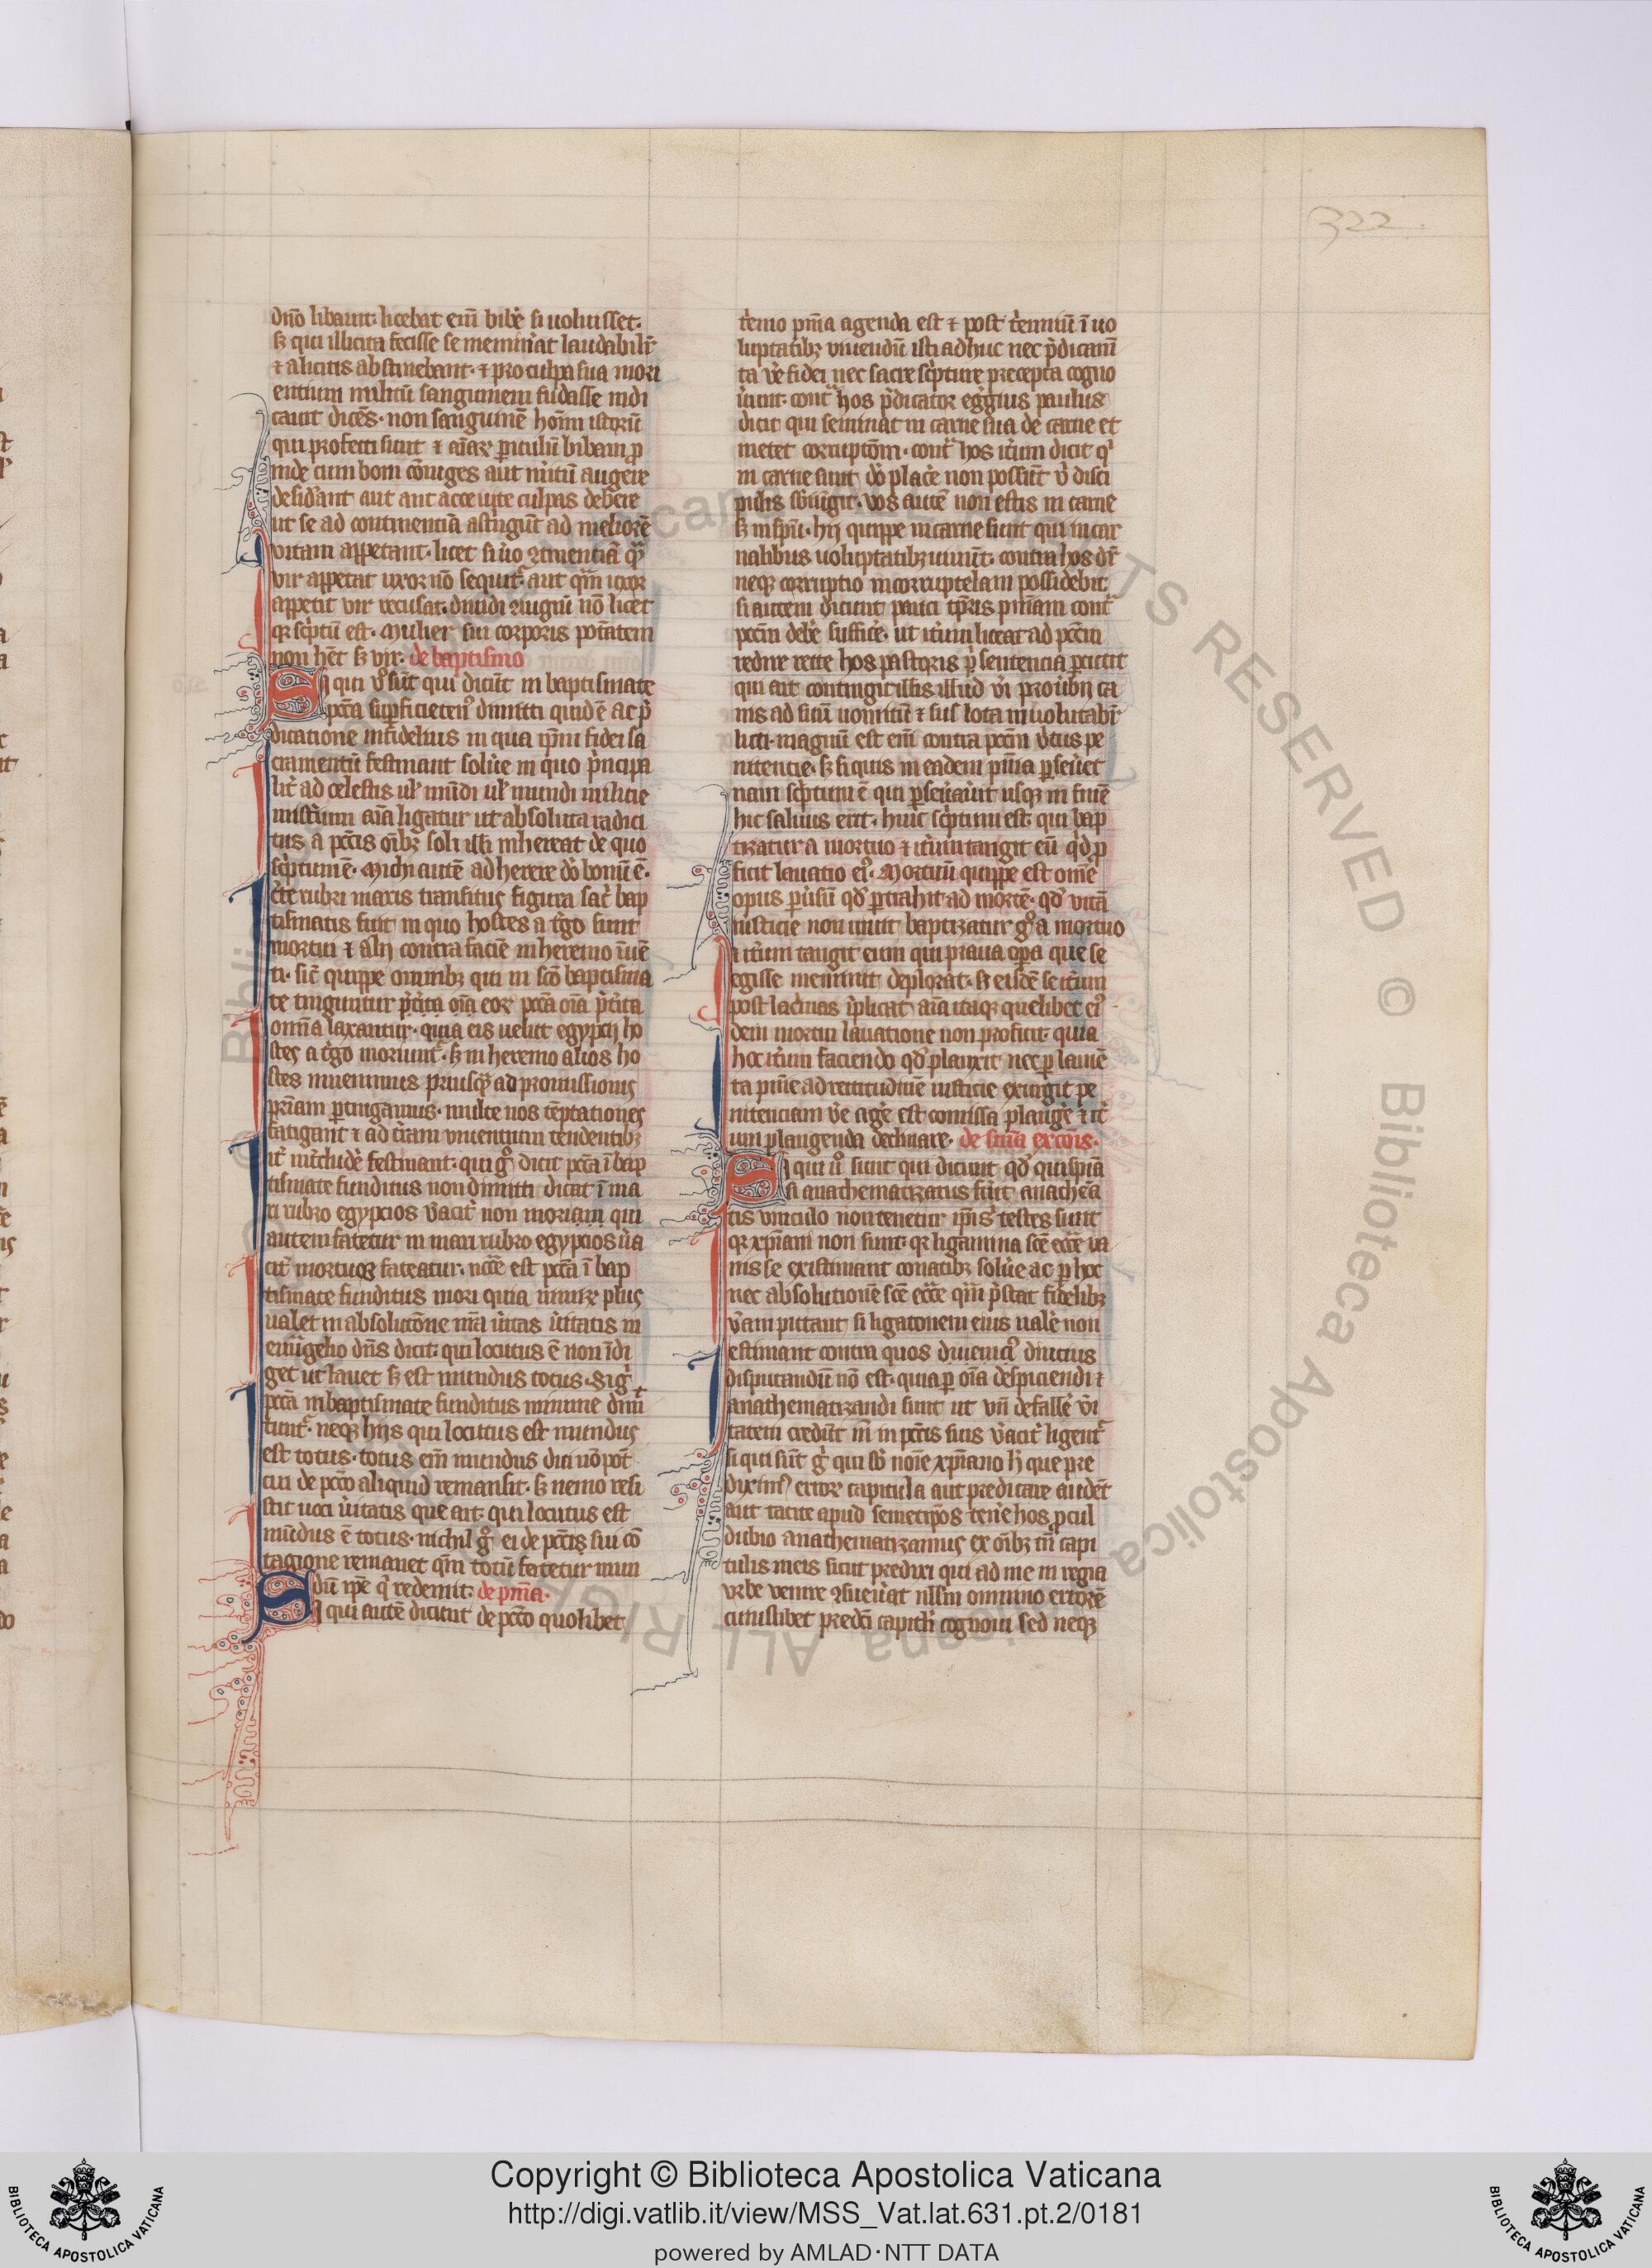 322
dn̄o libauit· licebat eni᷒ bibe᷒ si uoluisset·
sꝫ qui illicita fecisse se memin᷒at laudabilit᷒
⁊ a licitis abstinebant· ⁊ pro culpa sua mori
entium militū sanguinem fudasse indi
cauit dicēs· non sanguinē hoīm istorū
qui profecti sunt ⁊ aīaꝝ periculū bibam ꝓ
inde cum boni cōiuges aut m᷒itū augere
desid᷒ant aut ante acce culpas debere
ut se ad continentiā astīgūt ad meliorē
vitam appetant· licet si u᷒o ꝯtinentiā quā
vir appetat uxor nō sequit᷒ aut quā uxor
appetit vir recusat· diuidi ꝯiugiū nō licet
qꝛ sc᷒ptū est· Mulier sui corporis potātem
non hēt sꝫ vir· de baptismo
Si qui v᷒o sūt qui dicūt in baptismate
pcc̄a suꝑficieten᷒ dimitti quid ē ac p᷒
dicatione infidelius in qua ip̄m fidei sa
cramentū festinant solue᷒ in quo p᷒ncipa
lit᷒ ad celestis
misteriū aīa ligatur ut absoluta radici
tus a pcc̄is oībꝫ soli illi inhereat de quo
sc᷒ptum ē· Michi autē adherere dō bonū ē·
c᷒te rubri maris transitus figura sac᷒ bap
tismatis fuit in quo hostes a t᷒go sunt
mortui ⁊ alij contra faciē in heremo īuē
ti· sic quippe omnibꝫ qui in sc̄o baptisma
te tinguntur p᷒t᷒ita oīa eoꝝ pcc̄a oīa p᷒t᷒ita
omīa laxantur· quia eis uelut egyptij ho
stes a t᷒go moriunt᷒· sꝫ in heremo alios ho
stes inuenimus p᷒usqꝫ ad promissionis
pr̄iam ꝑtingamus· multe nos tēptationes
fatigant ⁊ ad t᷒ram viuentium tendentibꝫ
it᷒ int᷒clude᷒ festinant· qui g᷒ dicit pcc̄a ī bap
tismate funditus non dimitti dicat ī ma
ri rubro egyptios v᷒acit᷒ non mortuos qui
autem fatetur in mari rubro egyptios u᷒a
cit᷒ mortuos fateatur· nc̄ce est pcc̄a ī bap
tismate funditus mori quia nimirū plus
ualet in absolucōne nr̄a u᷒itas u᷒itatis in
euāgelio dn̄s dicit· qui locutus ē non īdi
get ut lauet sꝫ est mundus totus· Si g᷒
pcc̄a in baptismate funditus minime dimi
tunt᷒· neqꝫ hijs qui locutus est mundus
est totus· totus enī mundus dici nō pōt
cui de pcc̄o aliquid remansit· sꝫ nemo resi
stit uoci u᷒itatis que ait· qui locutus est
mūdus ē totus· nichil g᷒ ei de pcc̄is sui cō
tagione remanet quē totū fatetur mun
dū ip̄e q᷒ redemit· de pn̄ia·
Si qui autē dicunt de pcc̄o quolibet
t᷒enio pn̄ia agenda est ⁊ post t᷒enniū ī uo
luptatibꝫ viuendū isti adhuc nec p᷒dicam̄
ta v᷒e fidei nec sacre sc᷒pture precepta cogno
u᷒unt· cont᷒ hos p᷒dicator eg᷒gius paulus
dicit qui seminat in carne sua de carne et
metet corruptōm· cont᷒ hos it᷒um dicit q᷒
in carne sunt dō place᷒ non possūt v᷒ disci
pulis sb᷒iūgit· vos autē non estis in carne
sꝫ in sp̄u· hij quippe in carne sunt qui in car
nalibus uoluptatibꝫ uiuūt· contra hos dr̄
neqꝫ corruptio incorruptelam possidebit·
si autem dicunt pauci tp̄ris pn̄iam cont᷒
pcc̄m debe᷒ suffice᷒· ut it᷒um liceat ad pcc̄m
redire recte hos pastoris p᷒ sentencia ꝑcutit
qui ait contingit illis illud v᷒i prou᷒bij ca
nis ad suū uomitū ⁊ sus lota in uolutabr᷒
luti· magnū est eni᷒ contra pcc̄m v᷒tus pe
nitencie· sꝫ si quis in eadem pn̄ia ꝑseu᷒et
nam sc᷒ptum ē qui ꝑseu᷒au᷒it usqꝫ in finē
hic saluus erit· hinc sc᷒ptum est· qui bap
tizatur a mortuo ⁊ it᷒um tangit eū qͥd ꝓ
ficit lauatio ei᷒· Mortuū quippe est omē
opus ꝑu᷒sū qd̄ ꝑtrahit ad mortē· qd̄ vitā
iusticie non uiuit baptizatur g᷒ a mortuo
⁊ it᷒um tangit eum qui praua oꝑa que se
egisse meminit deplorat· sꝫ eisdē se it᷒um
post lac᷒mas īplicat aīa itaqꝫ quelibet ei᷒
dem mortui lauatione non proficit· quia
hoc it᷒um faciendo qd̄ planxit nec ꝑ lamē
ta pn̄ie ad rectitudinē iusticie exurgit pe
nitenciam v᷒e age᷒ est comissa plange᷒ ⁊ it᷒
um plangenda declinare· de sn̄ia excōis·
Si qui u᷒o sunt qui dicunt qd̄ quispiā
si anathematizatus fu᷒it anathēa
tis vinculo non tenetur ip̄is testes sunt
qꝛ xp̄iani non sunt· qꝛ ligamina sc̄e ecc̄e ua
nis se existimant conatibꝫ solue᷒ ac ꝑ hoc
nec absolutionē sc̄e ecc̄e quā p᷒stat fidelibꝫ
v᷒am putant si ligationem eius uale᷒ non
estimant contra quos diutius
disputandū nō est· quia ꝑ oīa despiciendi ⁊
anathematizandi sunt ut vn̄ defalle᷒ v᷒i
tatem credūt in̄ in pcc̄is suis v᷒acit᷒ ligent᷒
si qui sūt g᷒ qui sb᷒ noīe xp̄iano h᷒ que pre
dixim᷒ erroꝝ capitula aut predicare audēt
aut tacite apud semetip̄os tene᷒ hos ꝓcul
dubio anathematizamus ex oībꝫ tn̄ capi
tulis meis sicut predixi qui ad me in regia
vrbe venire ꝯsueu᷒at nllm̄ omnino errorē
cuiuslibet predc̄i capitli᷒ cognoui sed neqꝫ
Copyright © Biblioteca Apostolica Vaticana
http://digi.vatlib.it/view/MSS_Vat.lat.631.pt.2/0181
powered by AMLAD·NTT DATA
BIBLIOTECA APOSTOLICA VATICANA
BIBLIOTECA APOSTOLICA VATICANA